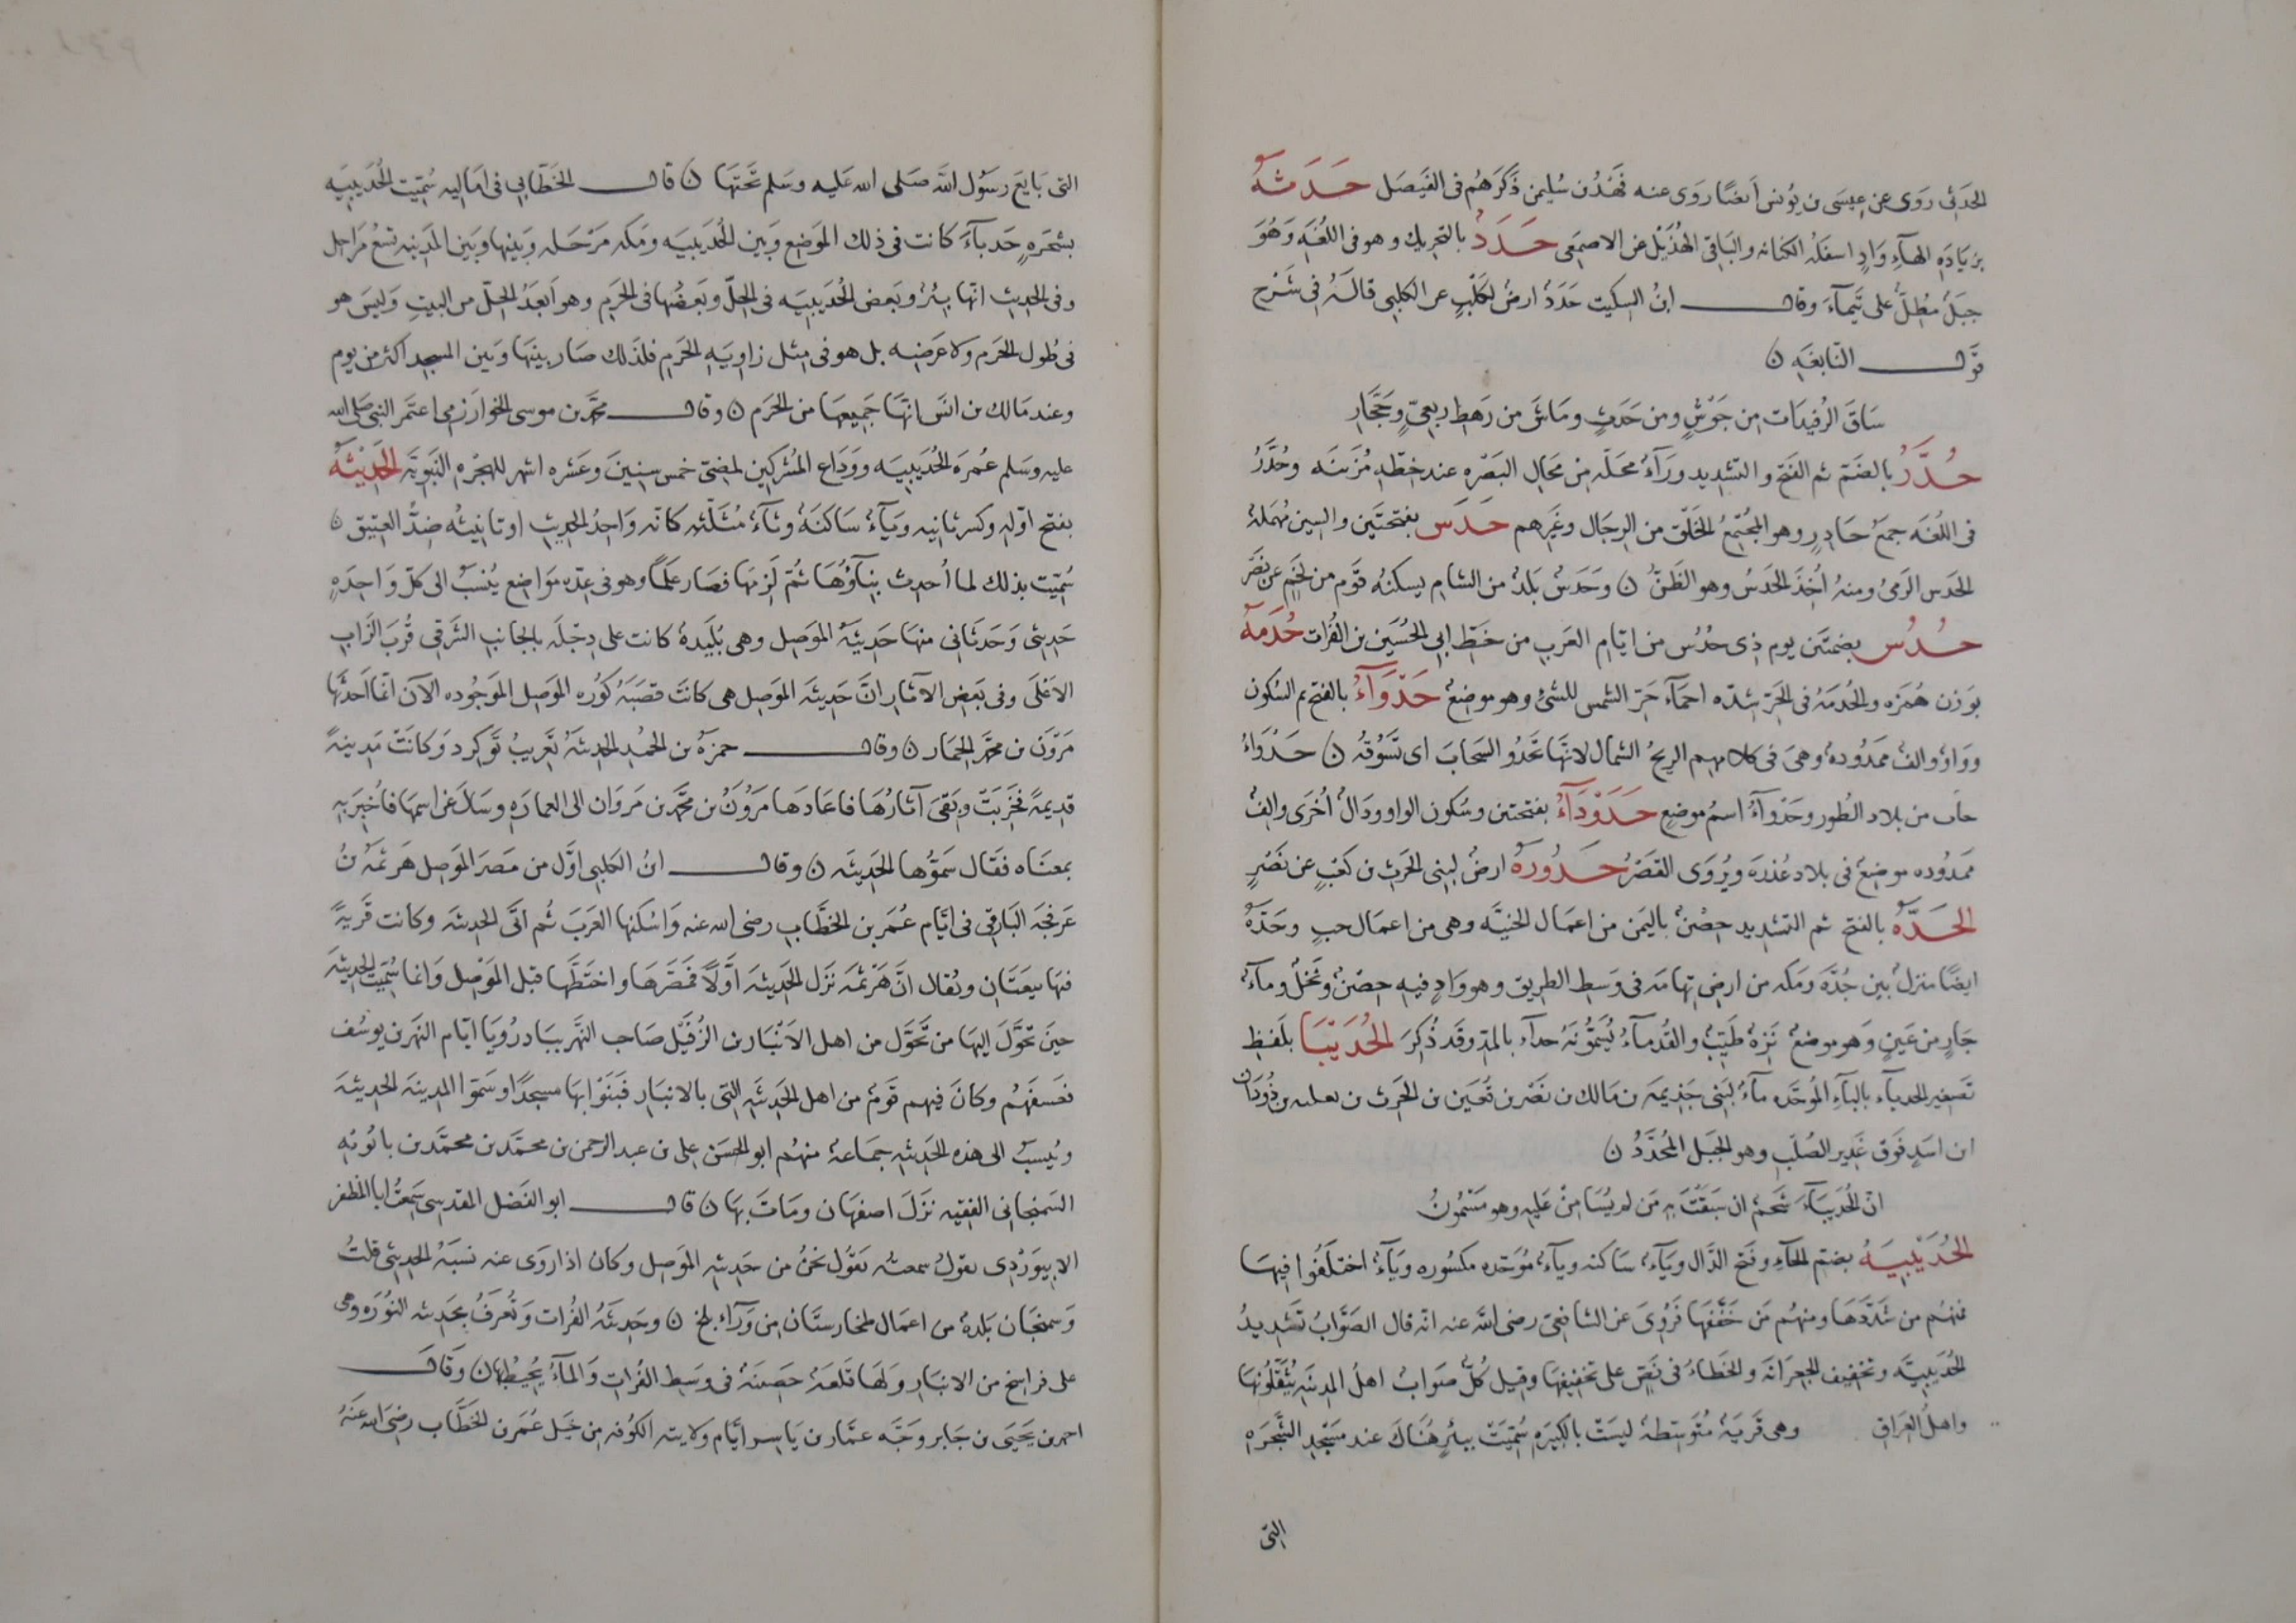 الحَدَثِى رَوَى عن عِيسَى بن يُونس اَيضًا رَوى عنه فَهْدُ بن سُليمن ذَكَرَهُم فى الفَيصَل حَدَثَهُ
بزيَادَةِ الهَآءِ وَادٍ اسفَلهُ لكنانه والبَاقى لهُذَيْل عن الاصمَعى حَدَدُ بالتحريك وهو فى اللغُةِ وَهُوَ
جبَلُ مُطِلُّ على تَيمآءَ وقال ابنُ السكيت حَدَدُ ارضُ لكَلْبٍ عن الكلبى قالَهُ فى شَرح
قَول النّابغَهِ ن
سَاقَ الرُفيدَات مِن جَوْشٍ ومن حَدَثٍ ومَاشَ من رَهطِ رِبعىٍّ وحَجَّارِ
حُدَّرُ بالضَم ثم الفَتحِ والتشديد ورَآءُ محَلّه مِن مَحَال البَصْرَهِ عند خطّهِ مُزَينَه وحُدَّرُ
فى اللُغَه جمَعُ حَادِرٍ وهو المجُتمِعُ الخَلّق من الرِجَال وغَيرهم حَدَسَ بفتحتَين والسِين مُهمَلةُ
الحَدس الرَمىُ ومنهُ اُخِذَ الحَدسُ وهو الظَنُّ ن وَحَدَسُ بَلَدُ من الشام يسكنُه قوَم من لخَمٍ عن نَصَر
حُدُس بضمتَين يوم ذى حدُسُ من ايّام العَرَبِ من خَطِّ ابى الحُسَين بن الفُرات حُدَمَهُ
بوَزن هُمَزَه والحُدمَهُ فى الحَرّ شدّه احمَآءِ حَرّ الشمس للشئ وهو موضعُ حَدْوَآءُ بالفتح ثم السُكون
ووَاوٌ والفٌ ممدُودهٌ وهىَ فى كلامهم الريحُ الشمال لانهّا تَحَدُو السَحابَ اى تَسُوقُهُ ن حَدْوَاءُ
من بلاد الطُور وحَدْوَآءُ اسمُ موضعٍ حَدَوْدَآءُ بفتحتين وسُكون الواو ودَالُ اُخْرَى والِفُ
ممَدُوده موضِعُ فى بلاد عُذرَه ويُروَى القصَرُ حَدُورَهُ ارضُ لبنِى الحَرث بن كَعْبٍ عن نَصْرٍ
الحَدَّهُ بالفتح ثم التشديد حِصْنُ باليَمن من اعمَال الحَنيّه وهى من اعمَال حبٍ وحَدّهُ
ايضًا منزلُ بين جُدَّه ومَكه من ارضِ تِهامَه فى وَسطِ الطريق وهو وَادٍ فيهِ حِصْنُ ونَخْلُ ومآءُ
جَارٍ من عَينٍ وَهو موضعُ نَزِهُ طَيّبُ والقُدمآءُ يُسَمُّونَهُ حداَء بالمدّ وقد ذُكِرَ الحُدَيْبَا بلَفظِ
تصَغير الحدبآء بالبآءِ الموَحّدَه مآءُ لبَنِى جَذيمَه بن مَالك بن نَصْر بن قُعَين بن الحَرث بن ثعلبه بن دُودَان
ابن اسَدٍ فَوق غَدِير الصُلَبِ وهو الجَبل المُحَدَّدُ ن
انّ الحُدَيبَآءَ شَحَمُ ان سَبَقَتَ بِه مَن لم يُسَامِنْ عَليهِ وهو مَسْمُونُ
الحُدَيْبِيَهُ بضم الحآءِ وفَتح الدَّال ويَآءُ ساكنه وبآءُ مُوَحّده مكسُوره ويَآءُ اختَلَفُوا فِيهَا
فمنهُم من شدَّدَهَا ومنهُم مَن خَفَّفَها فَرُوِىَ عن الشافعىّ رضى اللَّه عنه انّه قال الصَوّابُ تَشديدُ
الحُدَيبيَّه وتخفيف الجعرَانَه والخَطاءُ فى نَصِّ على تخفيفِهَا وقيل كُلُّ صَوابُ اهلُ المدينَهِ يُثَقّلونَها
واهلُ العِرَاق وهى قَريَهُ مُتَوَسِّطةُ ليسَتْ بالكَبيرَه سُمّيَتْ ببئرٍ هُنَاكَ عند مَسْجِدِ الشَّجَرَه
التى
التى بَايَعَ رَسُولُ اللّه صَلى الله عَليه وسَلم تَحتَهَا ن قال الخَطّابى فى اماليه سُمّيت الحُدَيبيَه
بشجَرَهٍ حَدبآءَ كانت فى ذلك الموَضِع وبَين الحُدَيبيَه ومَكه مَرْحَله وبَينها وبَين المَدينه تسعُ مَرَاحِل
وفى الحديث انّها بِئرُ وبَعض الحُدَيبيَه فى الحِلّ وبَعضُها فى الحَرَم وهو اَبعَدُ الحِلّ من البيتِ وَليسَ هو
فى طُول الحَرَم ولا عَرضه بل هو فى مثل زاويَهِ الحَرَم فلذَلك صَار بينَها وبَين المسجد اكثر من يوم
وعند مَالك بن انَس انَّها جَميعهَا من الحَرَم ن وقال محَمّد بن موسى الخوارَزمى اعتَمَر النبى صَلى الله
عليه وسَلم عُمرَه الحُدَيبيَه ووَدَاع المُشركِين لمضىّ خمس سِنِينَ وعَشره اشهر للهجرَه النَبوّيَه الحَدِيْثَهُ
بفتح اوّله وكسر ثانِيه ويَآءُ ساكنَهُ وثآءُ مُثَلَّثه كانّه وَاحِدُ الحَديث او تانيثُه ضِدُّ العَتيق ن
سُمّيَت بذلك لما اُحدِث بنآؤُهَا ثُمّ لَزِمَها فصَار عَلَمًا وهو فى عِدّه موَاضِع يُنسَبُ الى كلّ وَاحِدَهٍ
حَديثى وَحَدَثَانى منهَا حَديثَهُ الموَصِل وهى بُليَدهُ كانت على دِجْلَه بالجانبِ الشَرقى قُربَ الزَابِ
الاَعْلَى وفى بَعضِ الآثار انَّ حَديثَه الموَصِل هى كانَت قصَبَهُ كوُره الموَصِل الموَجُوده الآن انَّمَا اَحدَثَها
مَرْوَن بن محمَّد الحِمَار ن وقال حمزَهُ بن الحَديثَهُ تَعريبُ نَوكِرد وَكانَتْ مَدينهً
قديمهً فخرَبَتْ وبَقىَ آثارُهَا فاعَادَهَا مَرْوَنُ بن محَمّد بن مَروَان الى العمارَهِ وسَاَلَ عن اسمِهَا فاُخبِرَ بهِ
بمعنَاه فقَال سَمّوُها الحَديثَه ن وقال ابنُ الكلبى اوَّل من مَصرَ الموَصِل هَرثَمَهُ بنُ
عَرفجَه البَارِقى فى اَيّام عُمَر بن الخطَّابِ رضى الله عنه وَاسْكَنَها العَرَبَ ثُم اتَّى الحديثَه وكانت قَريَهً
فيهَا بيعَتَان ويُقال انَّ هَرْثَمَه نزَل الحَديثَه اَوَّلًا فمَصَّرَهَا واختَطَّها قبل الموَصِل وانما سُمّيَت الحديثَه
حينَ تَحَّولَ اليهَا من تَحَوَّل من اهل الاَنْبَار بن الرُفَيل صَاحب النَّهر ببَادرُويَا ايّام النهَر بن يوسُف
فعَسَفَهُم وكانَ فيهم قَومُ من اهل الحَديثَهِ التى بالانبَار فَبَنَوْا بهَا مسجدًا وسَمَّوا المدينَه الحديثَه
ويُنسَبُ الى هذه الحَديثهِ جمَاعهُ منهُم ابو الحسَن على بن عبد الرحمن بن محمَّد بن محمَّد بن بابوُيَهِ
السَمنجانى الفَقيه نزَلَ اصفهَان ومَاتَ بهَا ن قال ابو الفَضل المقدِسى سَمعتُ ابا المظفر
الابيوَرْدِى يقولُ سمعتُه يَقُول نحنُ من حَديثه الموَصِل وكان اذا روَى عنه نسَبَهُ الحديثى قلتُ
وَسمنجَان بَلدهُ من اعمَال طخارستَان مِن وَرَآءِ بلخ ن وحَديثَهُ الفُرات وتُعرَفُ بحَديثه النوُرَه وهى
على فراسخ من الانبَارِ ولَهَا قَلعَهُ حَصينَهُ فى وَسَطِ الفُراتِ وَالمآءُ يُحيطُ بِهَا ن وَقالَ
احمد بن يَحيَى بن جَابر وَجّه عمَّار بن يَاسِر اَيّام ولايته الكوُفه مِن قِبَل عُمَر بن الخَطَّاب رضىَ الله عَنهُ